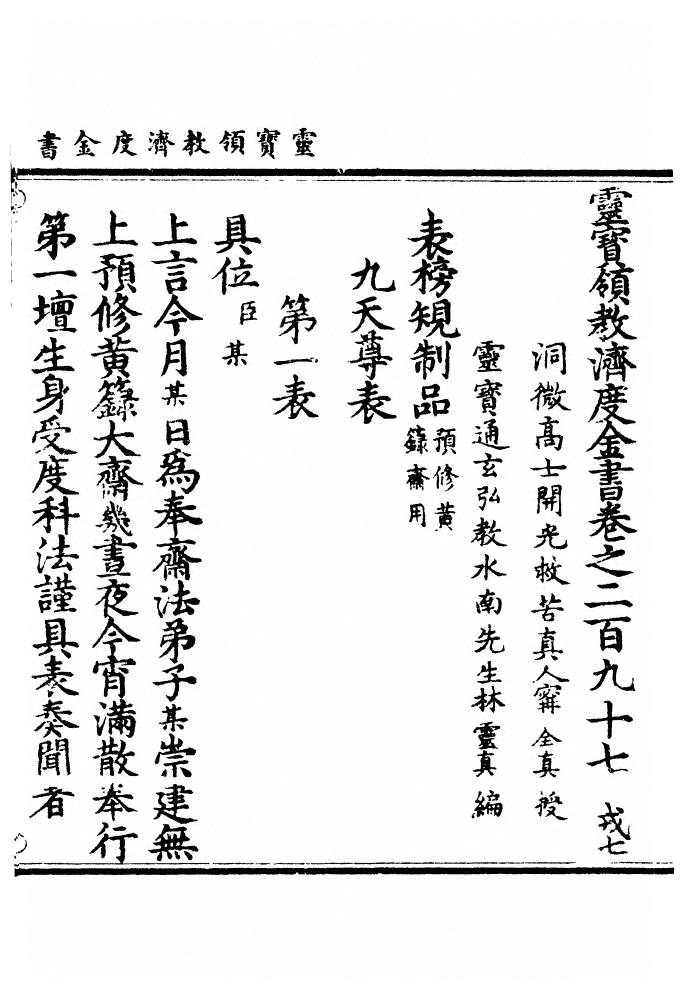 靈寶領教濟度金書
靈寶領教濟度金書卷之二百九十七 戎七
洞微高士開光救苦真人甯全真授
靈寶通玄弘教水南先生林靈真編
表榜規制品 預修黃籙齋用
九天尊表
第一表
具位臣某
上言今月某日為奉齋法弟子某崇建無
上預修黃籙大齋幾晝夜今宵滿散奉行
第一壇生身受度科法謹具表奏聞者